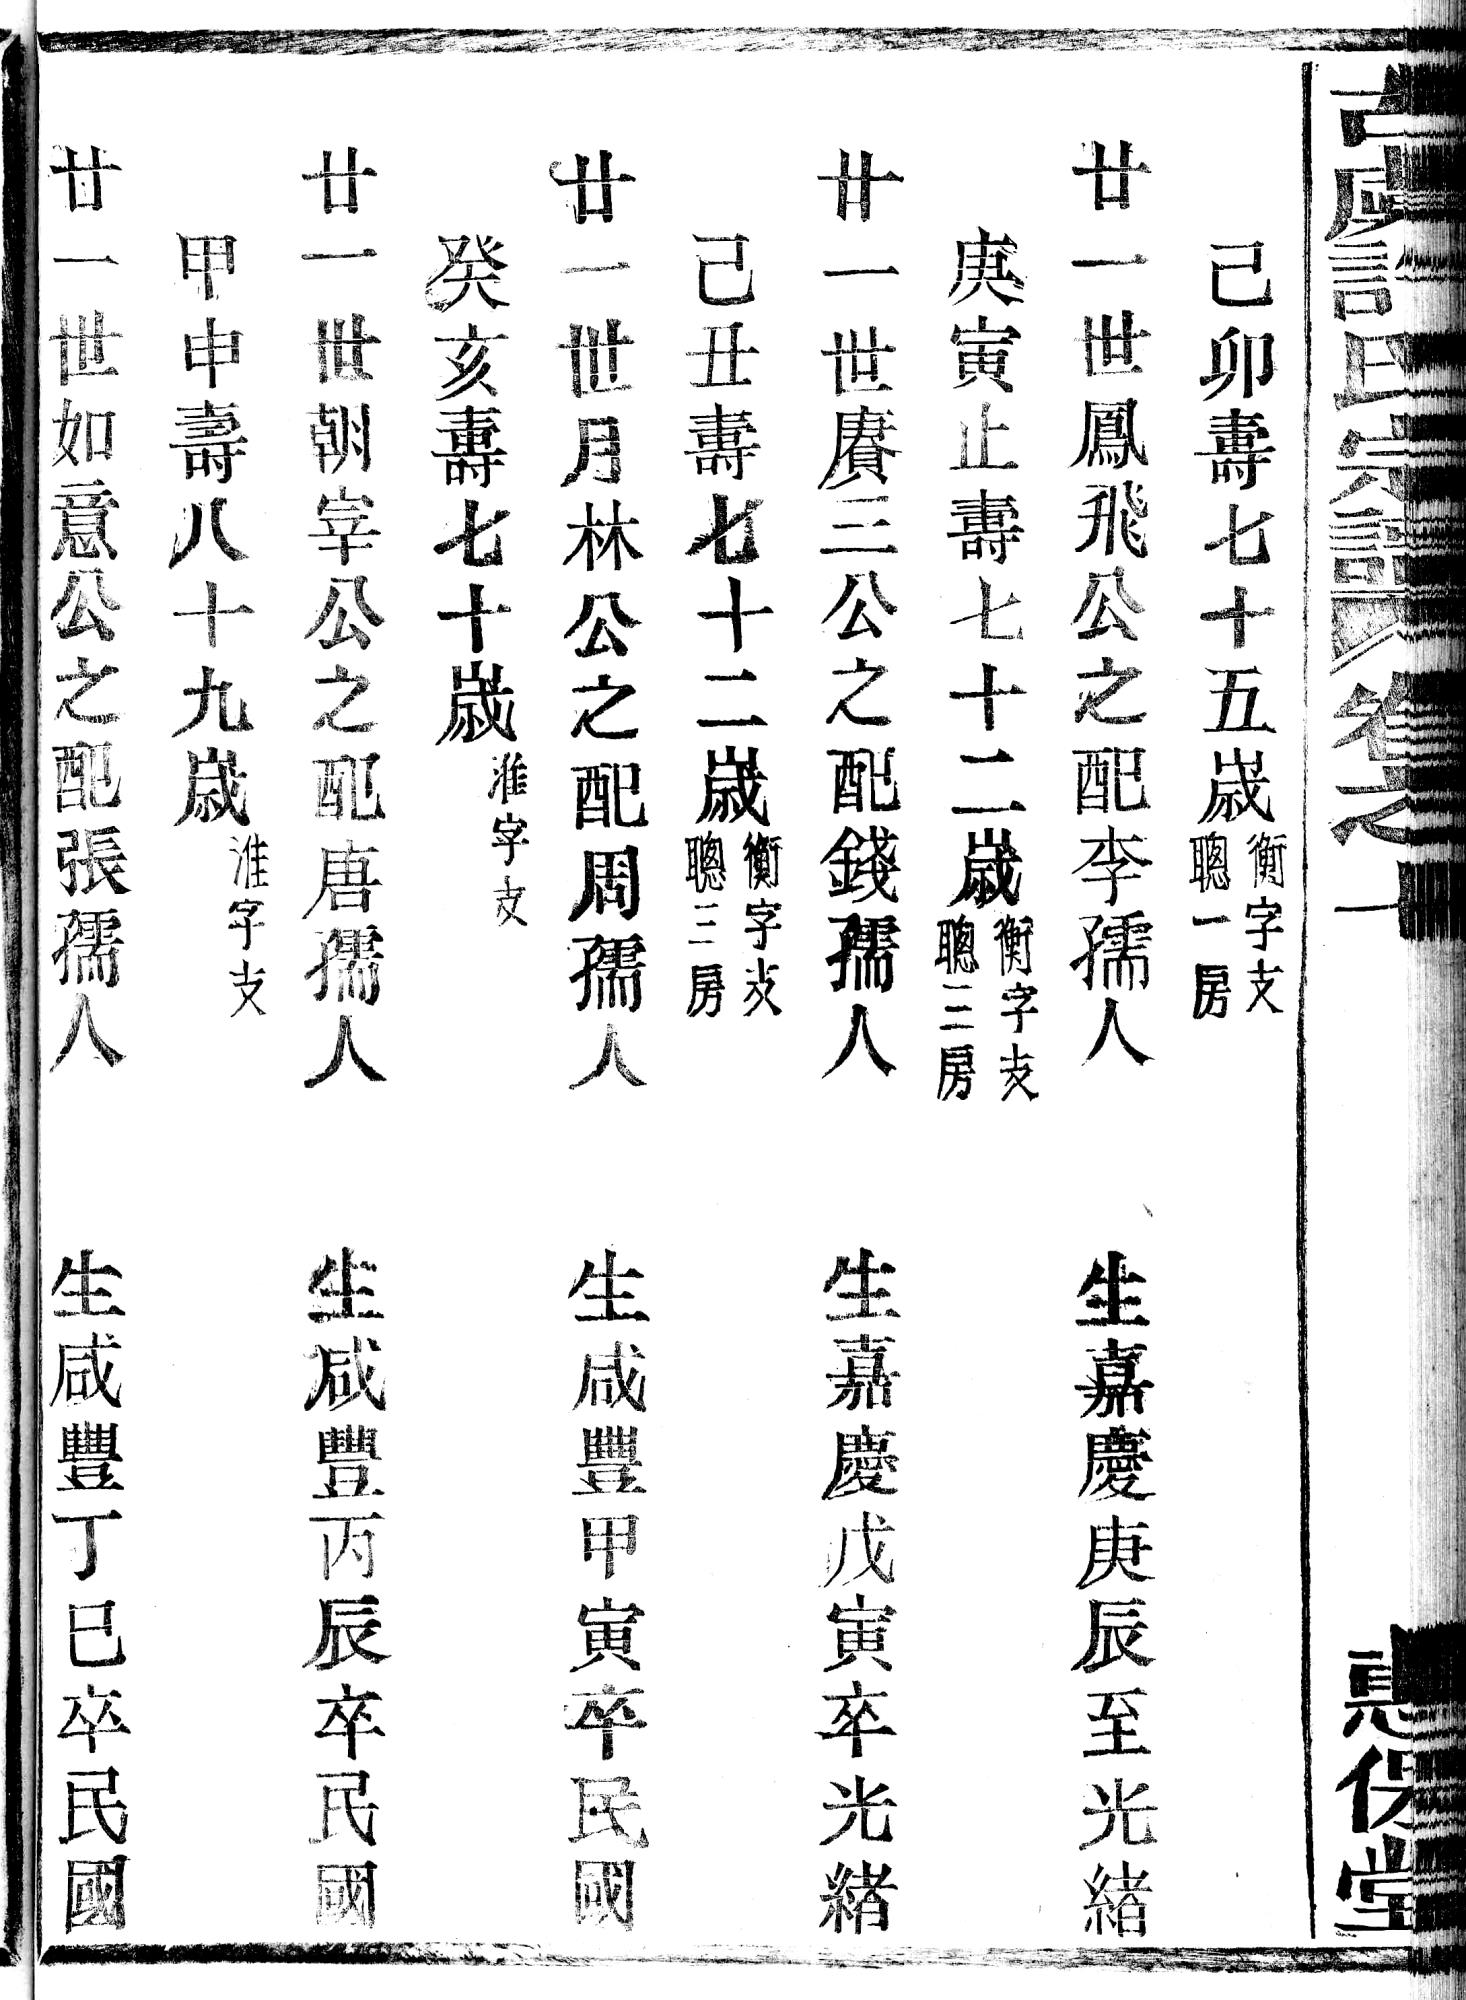 己卯壽七十五歲衡字支聰一房
廿一世鳳飛公之配李孺人　生嘉慶庚辰至光緒
庚寅止壽七十二歲衡字支聰三房
廿一世賡三公之配錢孺人　生嘉慶戊寅卒光緒
己丑壽七十二歲衡字支聰三房
廿一世月林公之配周孺人　生咸豐甲寅卒民國
癸亥壽七十歲淮字支
廿一世朝宰公之配唐孺人　生咸豐丙辰卒民國
甲申壽八十九歲淮字支
廿一世如意公之配張孺人　生咸豐丁巳卒民國
古虞許氏宗譜卷之一　惠保堂